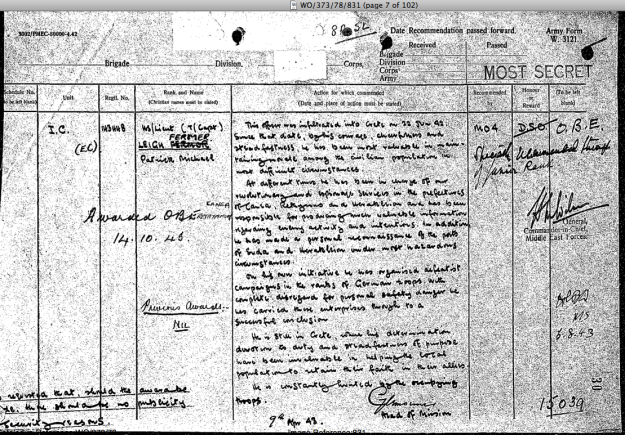 WO/373/78/831 (page 7 of 102)
3002/PMEC-10000-4.42
Date Recommendation passed forward.
Army Form
W. 3121
Received
Passed
Brigade
Division,
Corps,
Brigade
Division
Corps
Army
MOST SECRET
Schedule No.
Unit
Regtl. No.
Rank and Name
(Christian names must be stated)
Action for which commended
(Date and place of action must be stated)
Recommended
Honour
or
Reward
(To be left
blank)
I.C.
(EC)
Ws/Lieut (T/Capt)
FERMER
LEIGH FERMOR
Patrick Michael
This officer was infiltrated into Crete on
Since that date, by his courage, cheerfulness and
steadfastness, he has been most valuable in main-
taining morale among the civilian population in
most difficult circumstances.
At different times he has been in charge of our
revolutionary and espionage services in the prefectures
of Canea, and Herakleion and has been
responsible for producing much valuable information
regarding enemy activity and intentions. In addition
he has made a personal reconnaissance of the ports
of Suda and Herakleion under most hazardous
circumstances.
On his own initiative he has organised defeatist
campaigns in the ranks of German troops with
complete disregard for personal safety danger he
has carried these enterprises through to a
successful conclusion.
He is still in Crete, where his determination
devotion to duty and steadfastness of purpose
have been invaluable in helping the local
population to retain their faith in their allies.
He is constantly hunted by the occupying
troops.
Head of Mission
9th Apr 43.
MO4
DSO
O.B.E.
Awarded OBE
14.10.43
Previous Awards:-
Nil
General,
Commander-in-Chief,
Middle East Forces.
5.8.43
requested that should the award be
there should be no publicity
security reasons.
30
15039